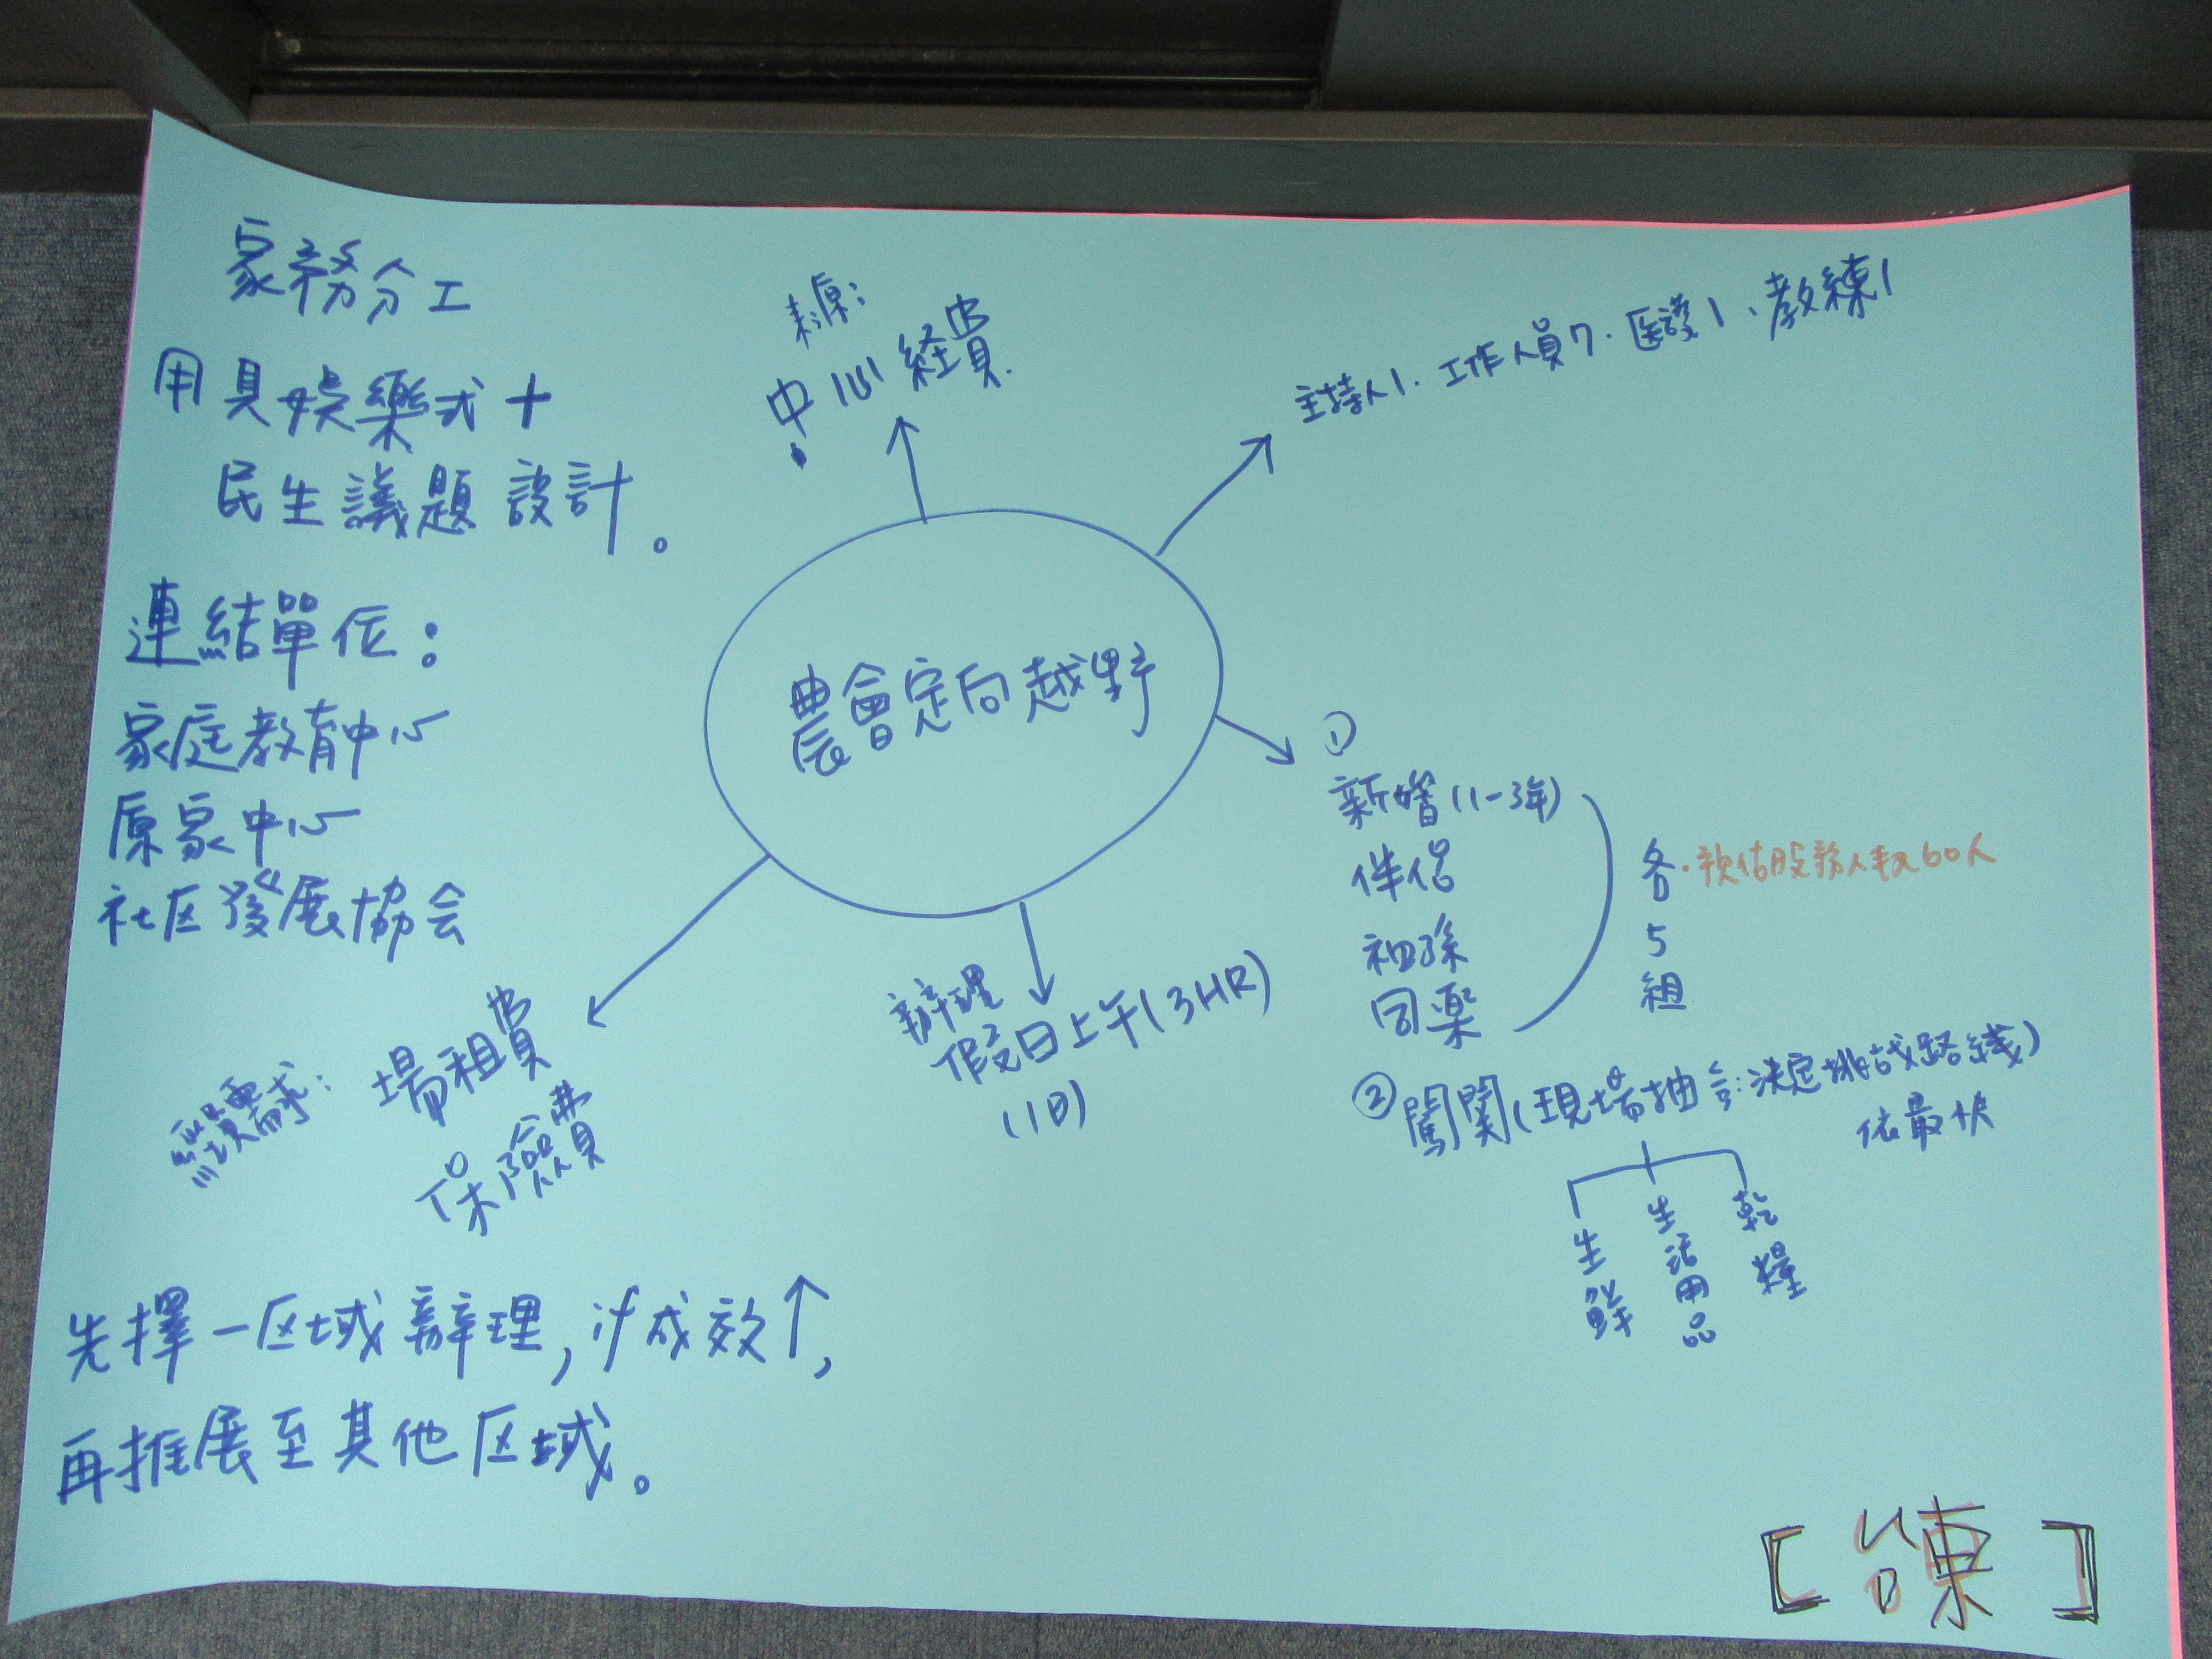 家務分工
用具娛樂式+
民生議題設計。
連結單位:
家庭教育中心
原家中心
社区發展協会
來源:
中心經費.
主持人1.工作人員7.医護1、教練1
農會定向越野
①
新婚(1-3年)
伴侶
祖孫
同樂
各
5
組
·預估服務人數60人
②闖關(現場抽籤:決定挑战路綫)
依最快
生鮮
生活用品
乾糧
辦理
假日上午(3HR)
(1日)
需求:
場租費
保險費
先擇一区域辦理,if成效↑,
再推展至其他区域。
[台東]